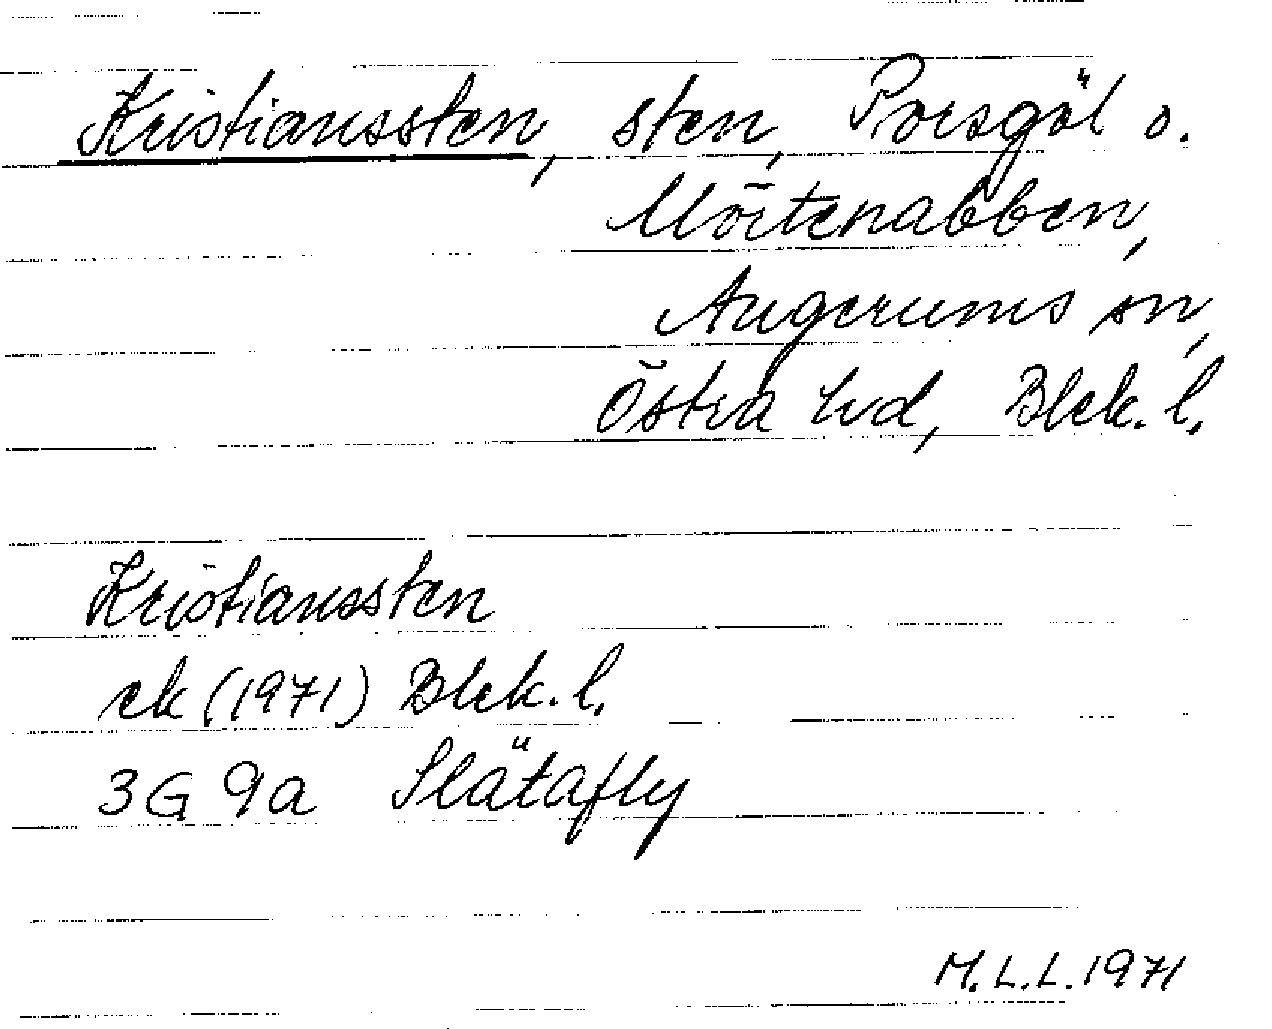 Kristianssten, sten, Porsgöl o.
Mörtenabben,
Augerums sn,
Östra hd, Blek. l.
Kristianssten
ek (1971) Blek. l.
3G 9a Slätafly
M.L.L. 1971